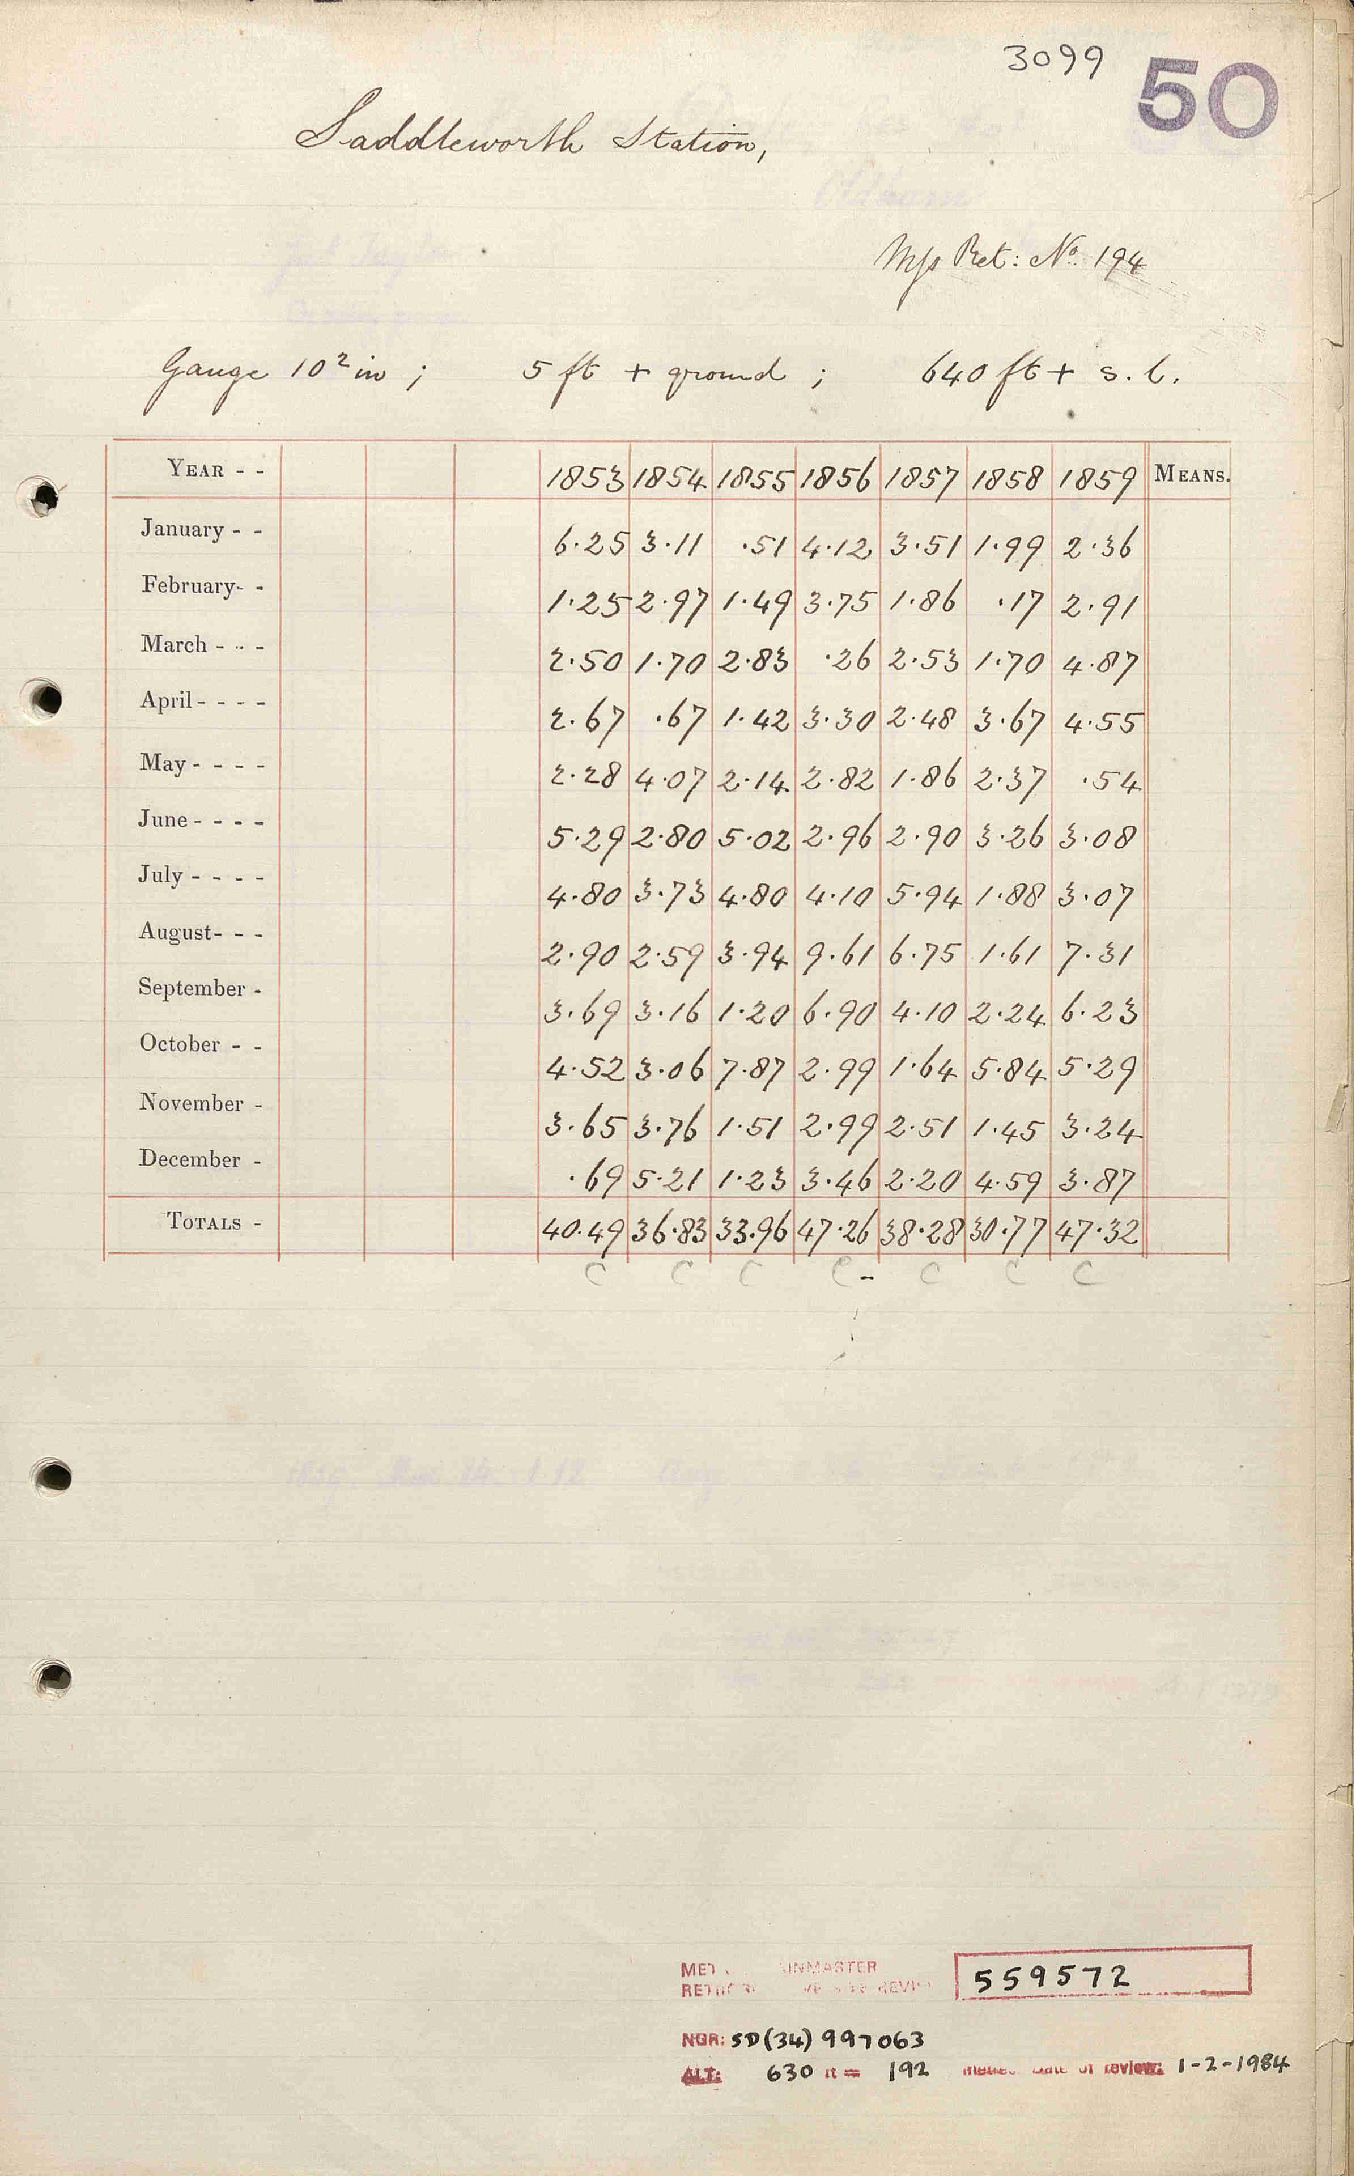 3099 50
Saddleworth Station,
Mss Ret: No. 194
Gauge 10² in ; 5 ft + ground ; 640 ft + s. l.
YEAR - - 1853 1854 1855 1856 1857 1858 1859 MEANS.
January - - 6.25 3.11 .51 4.12 3.51 1.99 2.36
February- - 1.25 2.97 1.49 3.75 1.86 .17 2.91
March - - - 2.50 1.70 2.83 .26 2.53 1.70 4.87
April - - - - 2.67 .67 1.42 3.30 2.48 3.67 4.55
May - - - - 2.28 4.07 2.14 2.82 1.86 2.37 .54
June - - - - 5.29 2.80 5.02 2.96 2.90 3.26 3.08
July - - - - 4.80 3.73 4.80 4.10 5.94 1.88 3.07
August- - - 2.90 2.59 3.94 9.61 6.75 1.61 7.31
September - 3.69 3.16 1.20 6.90 4.10 2.24 6.23
October - - 4.52 3.06 7.87 2.99 1.64 5.84 5.29
November - 3.65 3.76 1.51 2.99 2.51 1.45 3.24
December - .69 5.21 1.23 3.46 2.20 4.59 3.87
TOTALS - 40.49 36.83 33.96 47.26 38.28 30.77 47.32
C C C C C C C
559572
NGR: SD (34) 997063
ALT: 630 ft = 192 metres Date of review: 1-2-1984